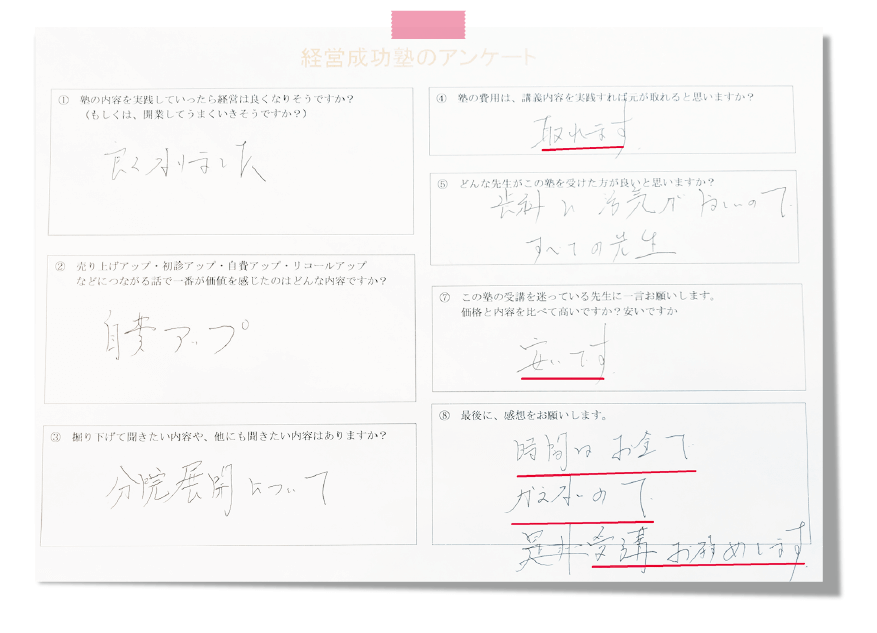 経営成功塾のアンケート
① 塾の内容を実践していったら経営は良くなりそうですか？
（もしくは、開業してうまくいきそうですか？）
良くなりました
② 売り上げアップ・初診アップ・自費アップ・リコールアップ
などにつながる話で一番が価値を感じたのはどんな内容ですか？
自費アップ
③ 掘り下げて聞きたい内容や、他にも聞きたい内容はありますか？
分院展開について
④ 塾の費用は、講義内容を実践すれば元が取れると思いますか？
取れます
⑤ どんな先生がこの塾を受けた方が良いと思いますか？
歯科に景気がないので
すべての先生
⑦ この塾の受講を迷っている先生に一言お願いします。
価格と内容を比べて高いですか？安いですか
安いです
⑧ 最後に、感想をお願いします。
時間はお金で
買えないので
是非受講お勧めします